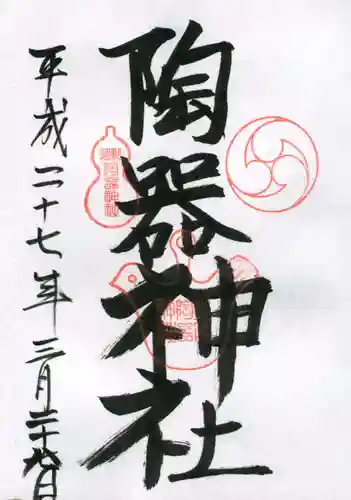 陶器神社
平成二十七年三月二十八日